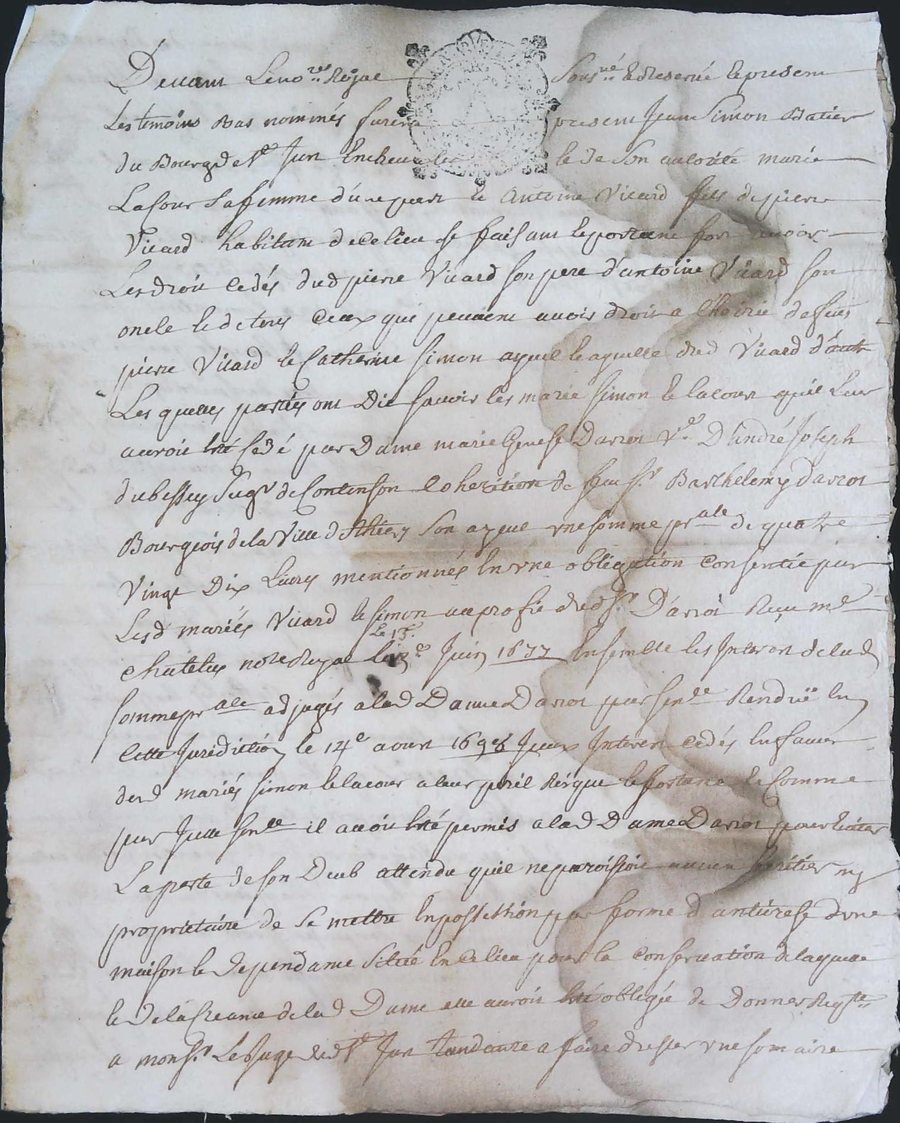 Devant Le no.re Royal Sous.né Et Reservé Et present
Les temoins bas nommés furent present Jean Simon
du Bourg de St Jun En le de Son autorité marie
Lacour Sa femme d'une part Et Antoine Vicard fils de pierre
Vicard habitant de ce lieu Se faisant Et portant fort
Les droit cedés dud pierre Vicard Son pere d'antoine Vicard Son
oncle Et de tous Ceux qui peuvent avoir droit a L'hoirie de feus
pierre Vicard Et Catherine Simon ayeul Et ayeulle dud Vicard d'autre
Les quelles parties ont Dit Scavoir Les mariés Simon Et Lacour qu'il Leur
auroit Eté Cedé par Dame marie Darioi V.e D'André Joseph
dubessey Juge de Contenson Coheritiere de feu Sr Barthelemy Darioi
Bourgeois de la Ville de Son ayeul une Somme pr.ale de quatre
Vingt Dix Livres mentionnés En une obligation Consentie par
Lesd mariés Vicard Et Simon au profit dud Sr. Darioi Reçu me
Chatelus nore Royal Le 15. Juin 1677 Ensemble Les Interets de lad
Somme pr.ale adjugés a lad Dame Darioi par Sen.ce Renduë En
Cette Jurediction Le 14e aoust 1696 Interets Cedés En faveur
desd mariés Simon Et Lacour a leur peril Risque Et fortune Et Comme
par Sen.ce il auroit Eté permis a lad Dame Darioi pour Eviter
La perte de Son Deub attendu qu'il ne paroissoit aucun heritier ny
proprietaire de Se mettre En possession par forme d'antierese d'une
maison Et Dependance Scitué En Ce lieu pour la Conservation de laquelle
Et de la Creance de lad Dame Elle auroit Eté obligée de Donner Req.te
a monsr Le Juge dud St Jun tandante a faire dresser une Somaire